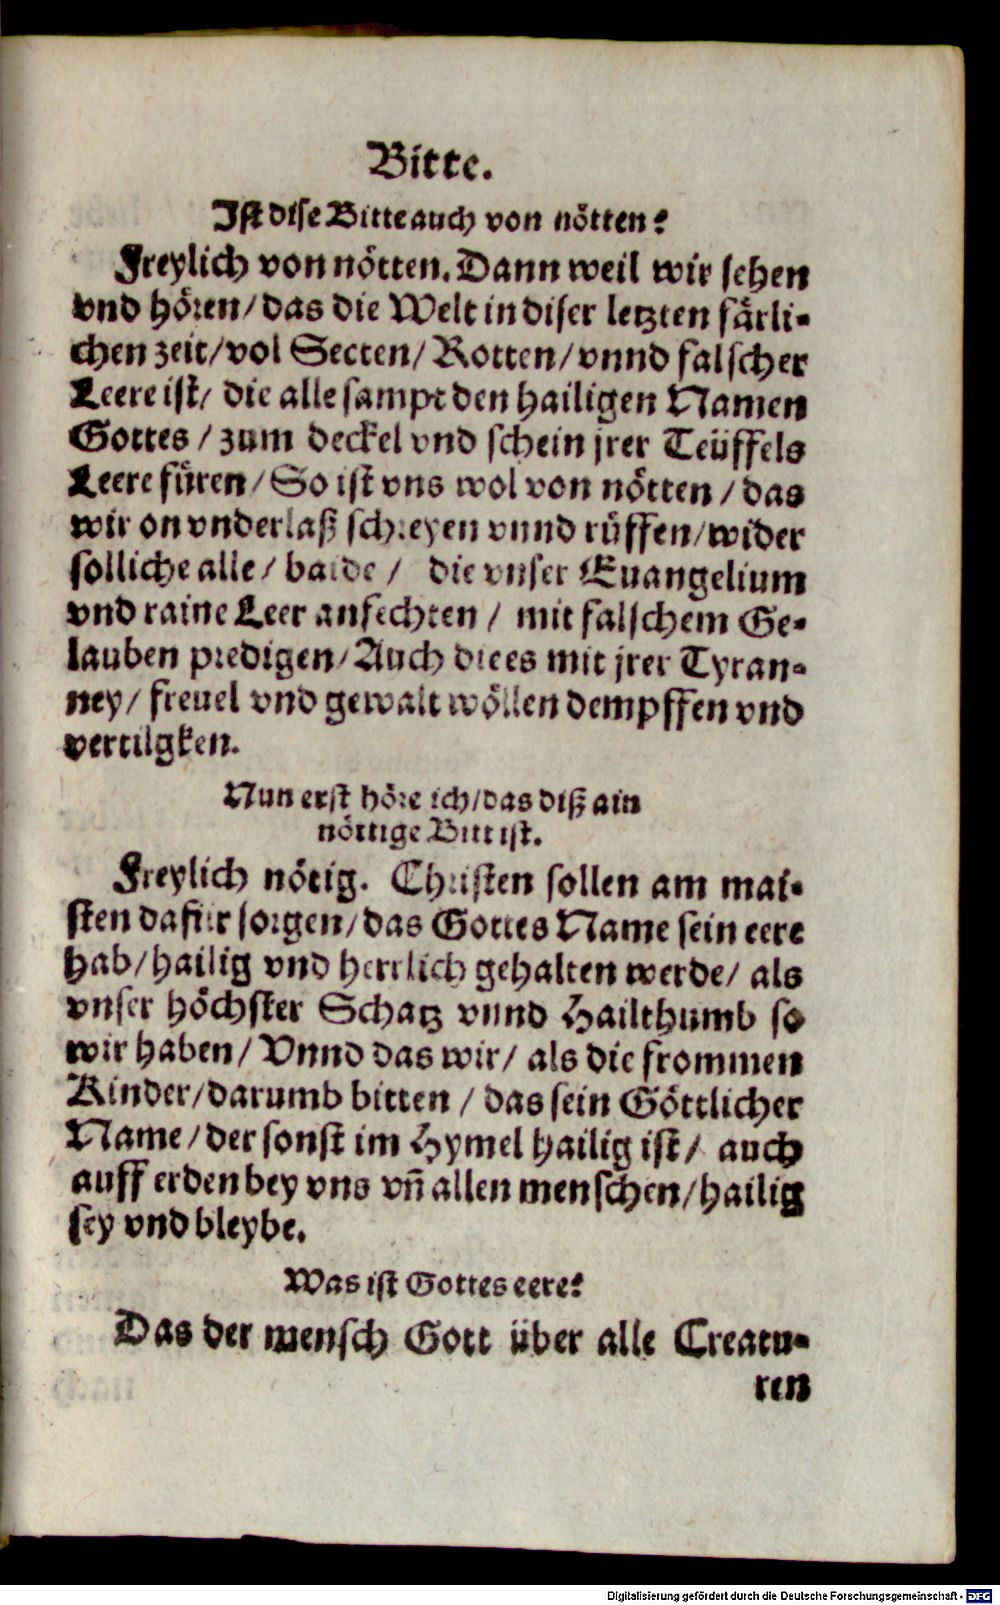 Bitte.
Ist dise Bitte auch von nötten?
Freylich von nötten. Dann weil wir sehen
vnd hören/das die Welt in diser letzten färli-
chen zeit/vol Secten/Rotten/vnnd falscher
Leere ist/ die alle sampt den hailigen Namen
Gottes/zum deckel vnd schein jrer Teüffels
Leere füren/So ist vns wol von nötten/das
wir on vnderlaß schreyen vnnd rüffen/wider
solliche alle/baide/ die vnser Euangelium
vnd raine Leer anfechten/ mit falschem Ge-
lauben predigen/Auch die es mit jrer Tyran-
ney/freuel vnd gewalt wöllen dempffen vnd
vertilgken.
Nun erst höre ich/das diß ain
nöttige Bitt ist.
Freylich nötig. Christen sollen am mai-
sten dafür sorgen/das Gottes Name sein eere
hab/hailig vnd herrlich gehalten werde/als
vnser höchster Schatz vnnd Hailthumb so
wir haben/Vnnd das wir/als die frommen
Kinder/darumb bitten/das sein Göttlicher
Name/der sonst im Hymel hailig ist/ auch
auff erden bey vns vñ allen menschen/hailig
sey vnd bleybe.
Was ist Gottes eere?
Das der mensch Gott über alle Creatu-
ren
Digitalisierung gefördert durch die Deutsche Forschungsgemeinschaft - DFG